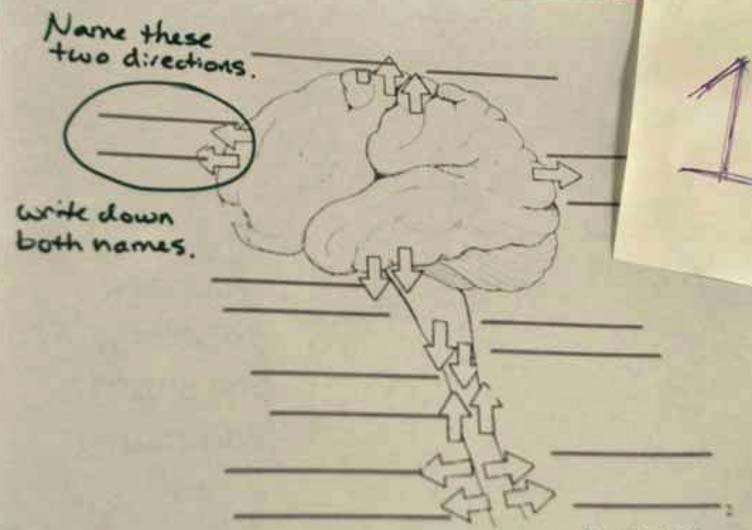 Name these
two directions.
1
write down
both names.